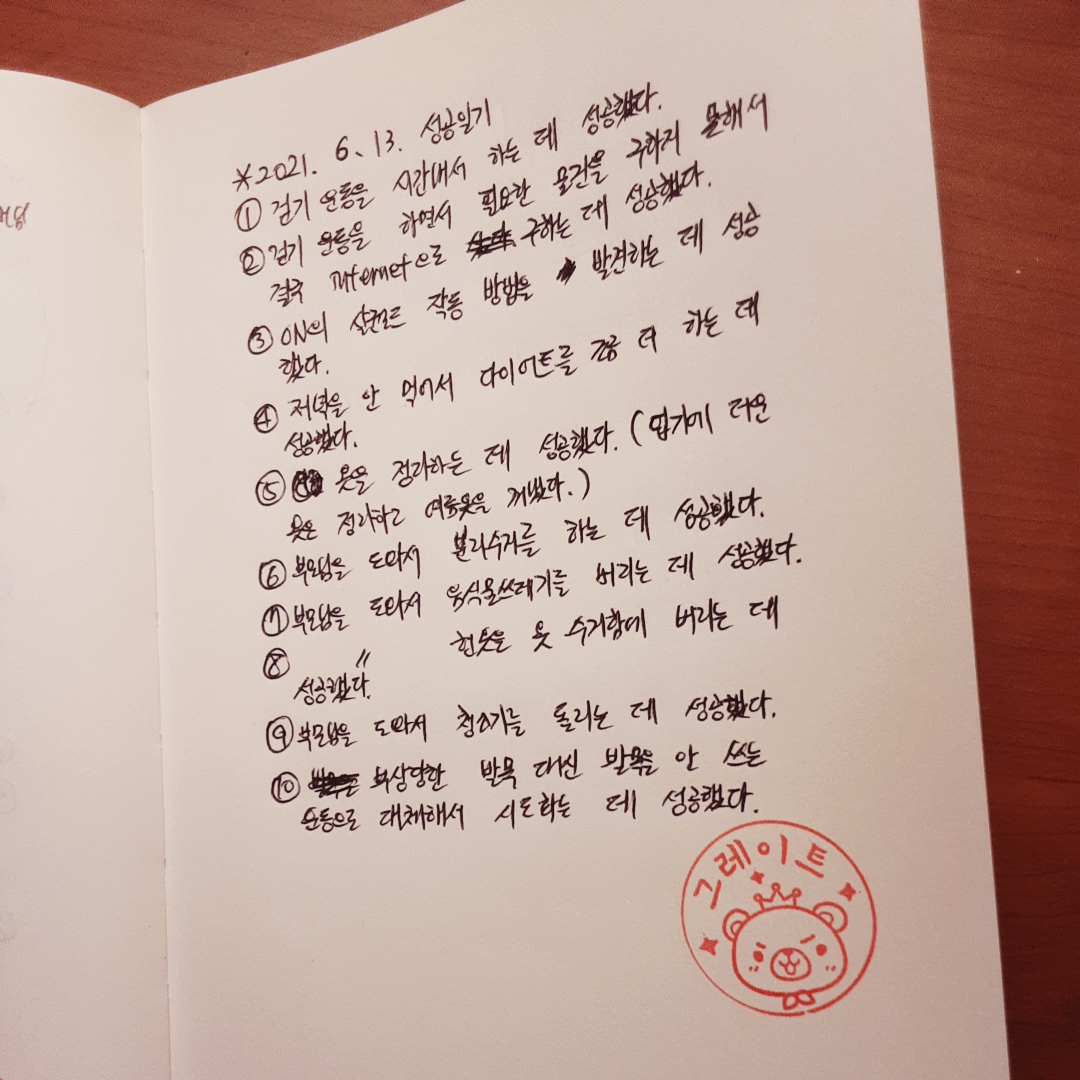 ※2021. 6. 13. 성공일기
① 걷기 운동을 시간내서 하는 데 성공했다.
② 걷기 운동을 하면서 필요한 물건을 구하지 못해서
결국 Internet으로 구하는 데 성공했다.
③ ON의 작동 방법을 발견하는 데 성공
했다.
④ 저녁을 안 먹어서 다이어트를 조금 더 하는 데
성공했다.
⑤ 옷을 정리하는 데 성공했다. (입기에 더운
옷은 정리하고 여름옷을 꺼냈다.)
⑥ 부모님을 도와서 분리수거를 하는 데 성공했다.
⑦ 부모님을 도와서 음식물쓰레기를 버리는 데 성공했다.
⑧ 〃 헌옷을 옷 수거함에 버리는 데
성공했다.
⑨ 부모님을 도와서 청소기를 돌리는 데 성공했다.
⑩ 부상당한 발목 대신 발목을 안 쓰는
운동으로 대체해서 시도하는 데 성공했다.
그레이트